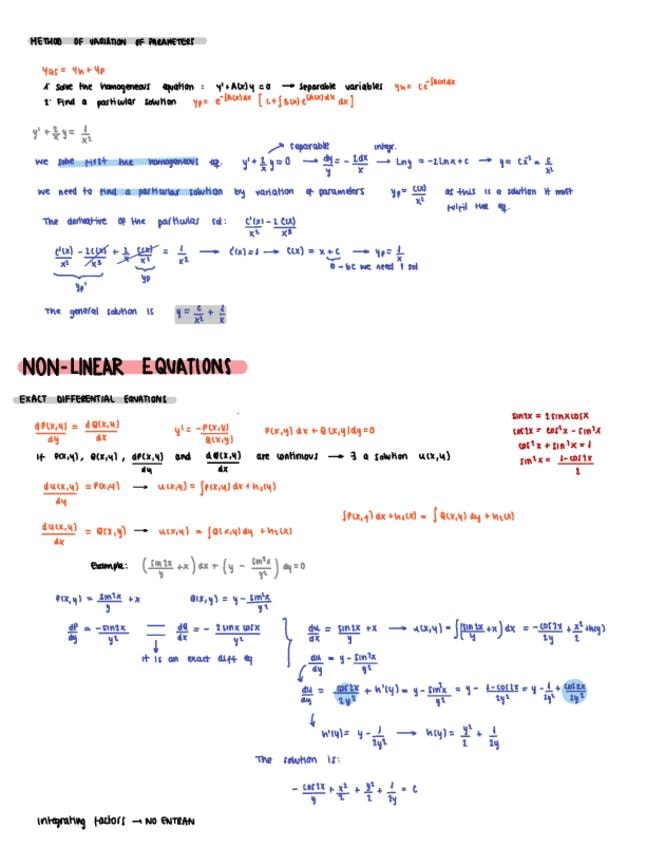 METHOD OF VARIATION OF PARAMETERS
yGS = yh + yp
1° Solve the homogeneous equation : y'+A(x)y=0 → separable variables yh = Ce^{-∫A(x)dx}
2° Find a particular solution yp = e^{-∫A(x)dx} [ C+∫B(x)e^{∫A(x)dx} dx ]
y' + 2/x y = 1/x²
We solve first the homogeneous eq. y'+ 2/x y=0 → dy/y = - 2dx/x → Lny = -2Lnx+c → y = cx⁻² = c/x²
separable
integr.
We need to find a particular solution by variation of parameters yp = c(x)/x² as this is a solution it must
fulfil the eq.
The derivative of the particular sol: c'(x)/x² - 2 c(x)/x³
c'(x)/x² - 2c(x)/x³ + 2/x c(x)/x² = 1/x² → c'(x)=1 → c(x) = x+c → yp = 1/x
yp'
yp
0 - bc we need 1 sol
The general solution is y = c/x² + 1/x
NON-LINEAR EQUATIONS
EXACT DIFFERENTIAL EQUATIONS
dP(x,y)/dy = dQ(x,y)/dx y' = -P(x,y)/Q(x,y) P(x,y) dx + Q(x,y)dy=0
If P(x,y), Q(x,y), dP(x,y)/dy and dQ(x,y)/dx are continous → ∃ a solution u(x,y)
sin2x = 2sinxcosx
cos2x = cos²x - sin²x
cos²x + sin²x = 1
sin²x = 1-cos2x/2
du(x,y)/dy = P(x,y) → u(x,y) = ∫P(x,y) dx + h1(y)
du(x,y)/dx = Q(x,y) → u(x,y) = ∫Q(x,y) dy + h2(x)
∫P(x,y) dx + h1(x) = ∫Q(x,y) dy + h2(x)
Example: (sin2x/y + x) dx + (y - sin²x/y²) dy = 0
P(x,y) = sin2x/y + x Q(x,y) = y - sin²x/y²
dP/dy = -sin2x/y² = dQ/dx = - 2sinx cosx/y²
it is an exact diff eq
du/dx = sin2x/y + x → u(x,y) = ∫(sin2x/y + x) dx = -cos2x/2y + x²/2 + h(y)
du/dy = y - sin²x/y²
du/dy = cos2x/2y² + h'(y) = y - sin²x/y² = y - 1-cos2x/2y² = y - 1/2y² + cos2x/2y²
h'(y) = y - 1/2y² → h(y) = y²/2 + 1/2y
The solution is:
- cos2x/y + x²/2 + y²/2 + 1/2y = c
Integrating factors → NO ENTRAN